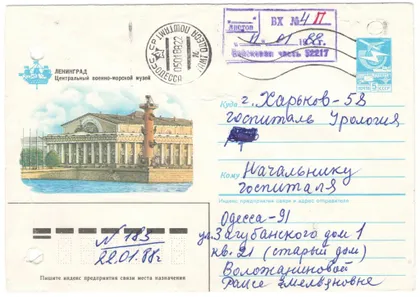 ЛЕНИНГРАД
Центральный военно-морской музей
ОДЕССА
ВХ № 4 П
листов
Войсковая часть 52217
Куда г. Харьков-58
госпиталь Урология
Кому Начальнику
госпиталя
Индекс предприятия связи и адрес отправителя
Одесса-91
ул. Загубанского дом 1
кв. 21 (старый дом)
Воложаниновой
Фаисе Емельяновне
№ 183
28.01.88г.
Пишите индекс предприятия связи места назначения